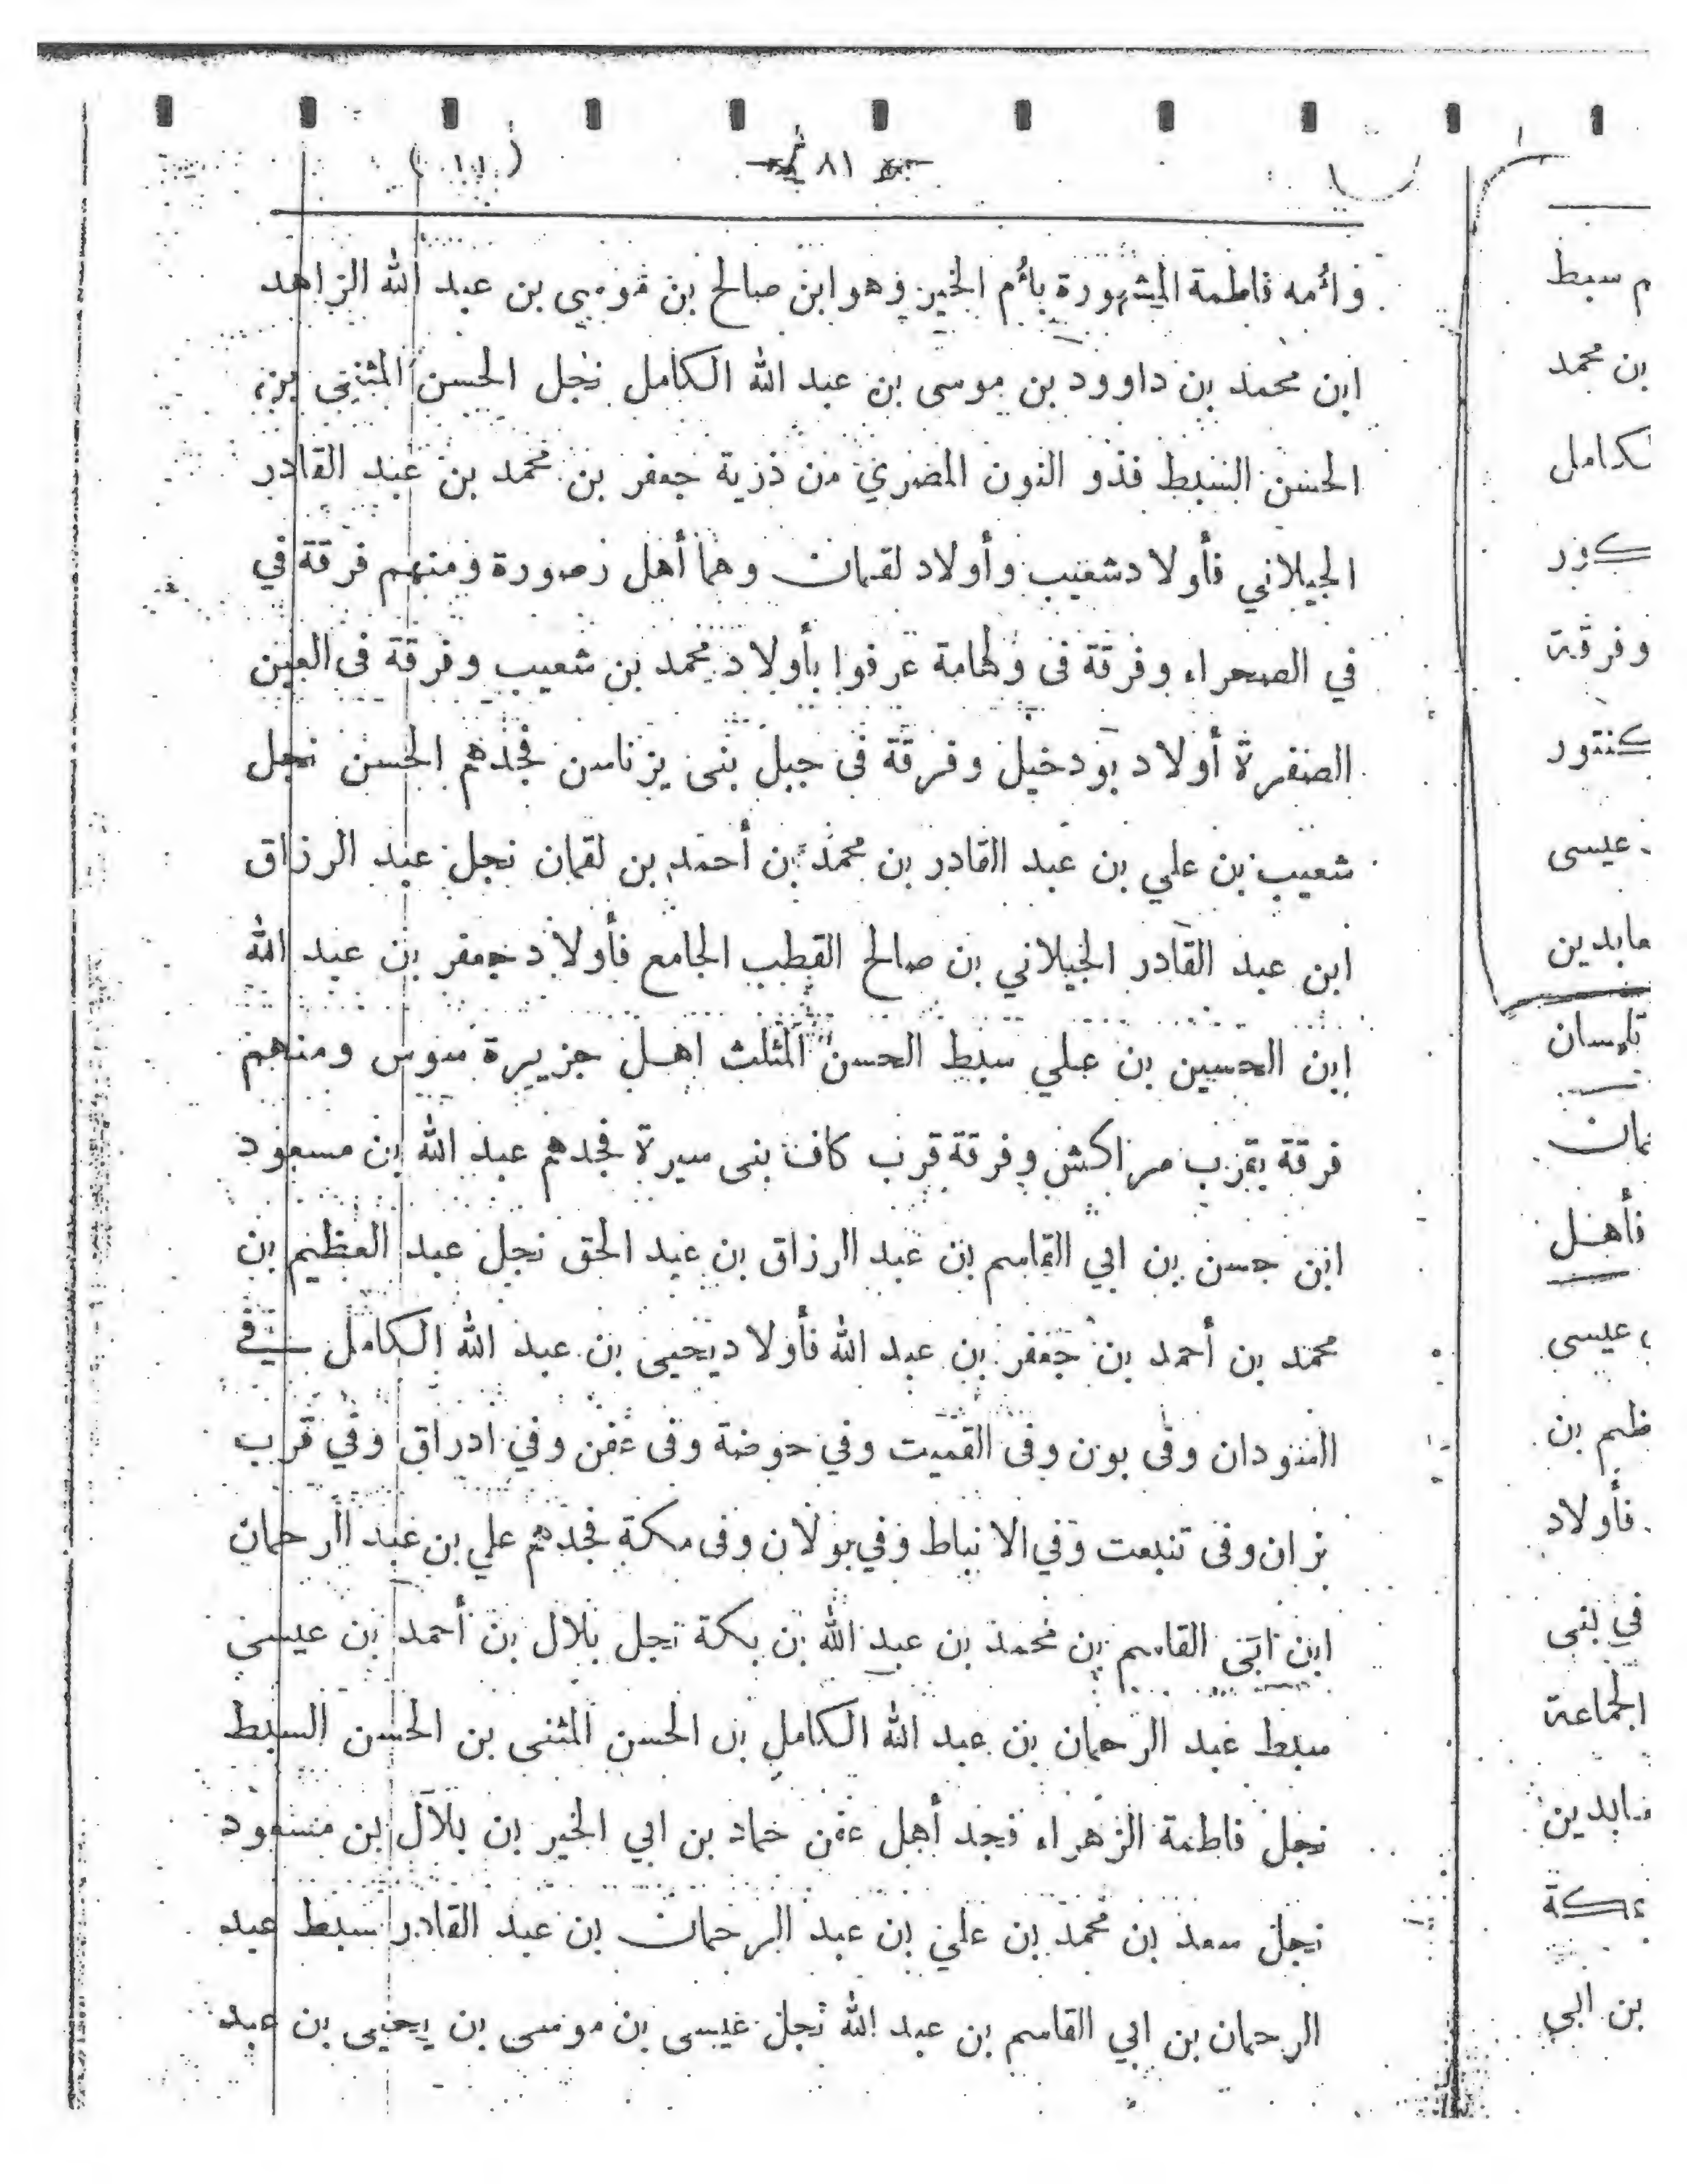 ٨١
وأمه فاطمة المشهورة بأم الخير وهو ابن صالح بن موسى بن عبد الله الزاهد
ابن محمد بن داوود بن موسى بن عبد الله الكامل نجل الحسن المثنى بن
الحسن السبط فذو النون المصري من ذرية جعفر بن محمد بن عبد القادر
الجيلاني فأولاد شعيب وأولاد لقمان وهما أهل زصورة ومنهم فرقة في
في الصحراء وفرقة فى ولهامة عرفوا بأولاد محمد بن شعيب وفرقة فى العين
الصفرة أولاد بودخيل وفرقة فى جبل بنى يزناسن فجدهم الحسن نجل
شعيب بن علي بن عبد القادر بن محمد بن أحمد بن لقمان نجل عبد الرزاق
ابن عبد القادر الجيلاني بن صالح القطب الجامع فأولاد جعفر بن عبد الله
ابن الحسين بن علي سبط الحسن المثلث اهل جزيرة سوس ومنهم
فرقة بقرب مراكش وفرقة قرب كاف بنى سيرة فجدهم عبد الله بن مسعود
ابن حسن بن ابي القاسم بن عبد الرزاق بن عبد الحق نجل عبد العظيم بن
محمد بن أحمد بن جعفر بن عبد الله فأولاد يحيى بن عبد الله الكامل في
السودان وفى بون وفى القميت وفي حوضة وفى عفن وفي ادراق وفي قرب
نزان وفى تنبعت وفي الانباط وفي بولان وفى مكة فجدهم علي بن عبد الرحمان
ابن ابى القاسم بن محمد بن عبد الله بن بكة نجل بلال بن أحمد بن عيسى
سبط عبد الرحمان بن عبد الله الكامل بن الحسن المثنى بن الحسن السبط
نجل فاطمة الزهراء فجد أهل عفن حماد بن ابي الخير بن بلال بن مسعود
نجل سعد بن محمد بن علي بن عبد الرحمان بن عبد القادر سبط عبد
الرحمان بن ابي القاسم بن عبد الله نجل عيسى بن موسى بن يحيى بن عبد
م سبط
بن محمد
لكامل
وفرقة
عيسى
تلمسان
فأهل
عيسى
ظيم بن
فأولاد
في بنى
الجماعة
بن ابي